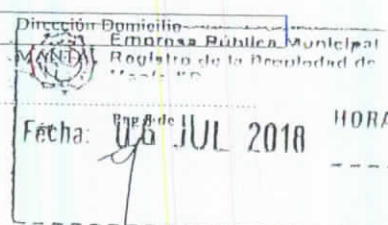 Dirección Domicilio
Empresa Pública Municipal
Registro de la Propiedad de
Fecha: 06 JUL 2018 HORA